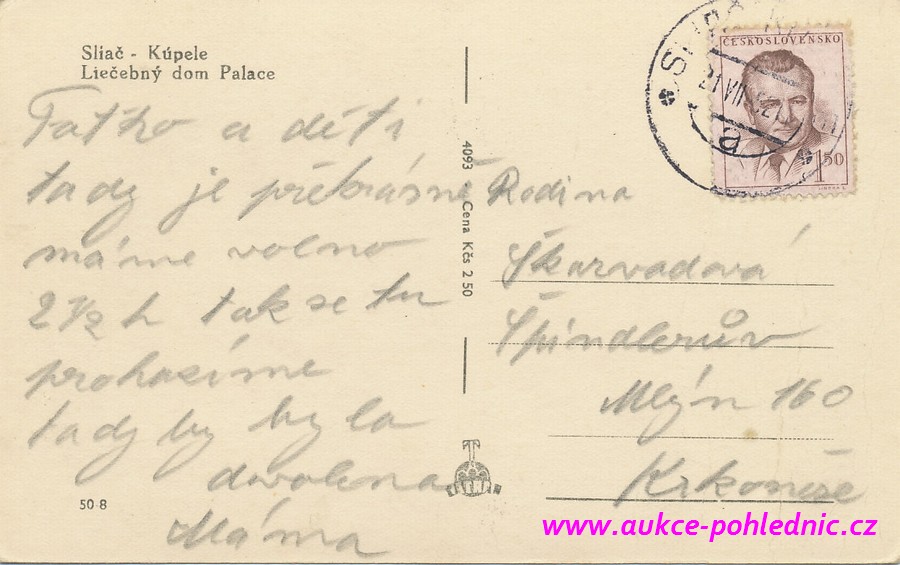 Sliač - Kúpele
Liečebný dom Palace
Taťko a děti
tady je překrásně
máme volno
2 1/2 h tak se tu
procházíme
tady by byla
dovolena
Máma
50-8
4093 Cena Kčs 2 50
Rodina
Škarvadová
Špindlerův
Mlýn 160
Krkonoše
ČESKOSLOVENSKO
1 50
21 VII 52
a
www.aukce-pohlednic.cz